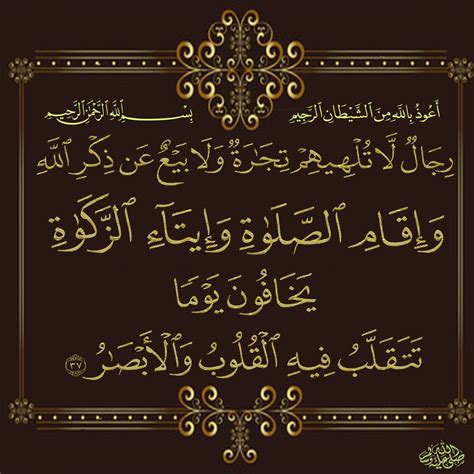 أَعُوذُ بِاللَّهِ مِنَ الشَّيْطَانِ الرَّجِيمِ بِسْمِ ٱللَّهِ ٱلرَّحْمَٰنِ ٱلرَّحِيمِ
رِجَالٌ لَّا تُلْهِيهِمْ تِجَٰرَةٌ وَلَا بَيْعٌ عَن ذِكْرِ ٱللَّهِ
وَإِقَامِ ٱلصَّلَوٰةِ وَإِيتَآءِ ٱلزَّكَوٰةِ
يَخَافُونَ يَوْمًا
تَتَقَلَّبُ فِيهِ ٱلْقُلُوبُ وَٱلْأَبْصَٰرُ ٣٧